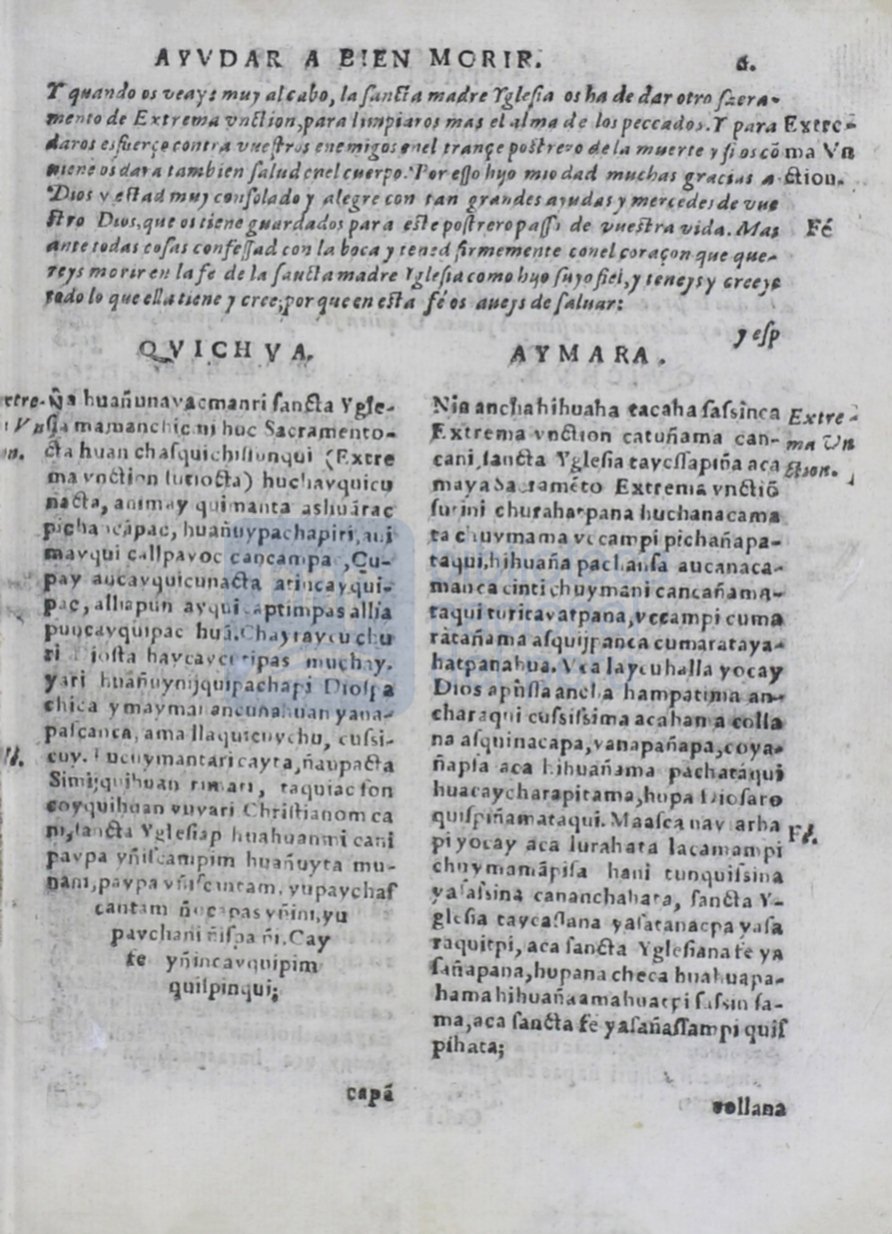 AYVDAR A BIEN MORIR. 6.
Y quando os veays muy al cabo, la sancta madre Yglesia os ha de dar otro sacra-
mento de Extrema vnction, para limpiaros mas el alma de los peccados. Y para
daros esfuerço contra vuestros enemigos enel trançe postrero de la muerte y si os cō
uiene os dara tambien salud enel cuerpo. Por esso hijo mio dad muchas gracias a
Dios y estad muy consolado y alegre con tan grandes ayudas y mercedes de vue
stro Dios, que os tiene guardados para este postrero passo de vuestra vida. Mas
ante todas cosas confessad con la boca y tened firmemente conel coraçon que que-
reys morir en la fe de la sancta madre Yglesia como hijo suyo fiel, y teneys y creeys
todo lo que ella tiene y cree, porque en esta fé os aueys de saluar:
y esp
Extre-
ma Vn
ction.
Fé
QVICHVA.
huañunavacmanri sancta Ygle-
sia mamanchic mi huc Sacramento-
cta huan chasquichisunqui (Extre
ma vnction sutiocta) huchayquicu
nacta, animayquimanta ashuārac
pichancāpac, huañuypachapiri,
callpayoc cancampac, Çu-
pay aucayquicunacta atincayqui-
pac, alliapun
puncayquipac huā. Chayraycu
muchay.
yari huañuynijquipachapi Diospa
chica ymaymana yana-
pascanca, ama llaquicuychu, cussi-
cuy. ñaupacta
Simijquihuan rimari,
soncoyquihuan yuyari Christianom ca
ni, sancta Yglesiap huahuanmi cani
paypa yñiscampim huañuyta mu-
nani, paypa
cantam yñini, yu
Cay
fe yñincayquipim
quispinqui;
capā
AYMARA.
Extre-
ma Vn
ction.
Fé.
Nia anchahihuaha tacaha sassinca
Extrema vnction catuñama can-
cani, sancta Yglesia taycssapiña aca
maya Sacramēto Extrema vnctiō
sutini churaharpana huchanacama
ta chuymama vccampi pichañapa-
taqui, hihuaña pachansa aucanaca-
manca cinti chuymani cancañama-
taqui turitavatpana, vccampi cuma
ratañama asquijpanca cumarataya-
hatpanahua. Vca laycuhalla yocay
Dios apussa ancha hampatima an-
charaqui cussissima acahama colla
na asquinacapa, yanapañapa, coya-
ñapsa aca hihuañama pachataqui
huacaycharapitama, hupa Diosaro
quispiñamataqui. Maasca nay arha
pi yocay aca lurahata lacamampi
chuymamāpisa hani tunquissina
yasassina cananchahata, sancta Y-
glesia taycassana yasatanacpa yasa
raquitpi, aca sancta Yglesiana fe ya
sañapana, hupana checa huahuapa-
hama hihuaña amahuatpi sassin sa-
ma, aca sancta fe yasañassampi quis
pihata;
collana